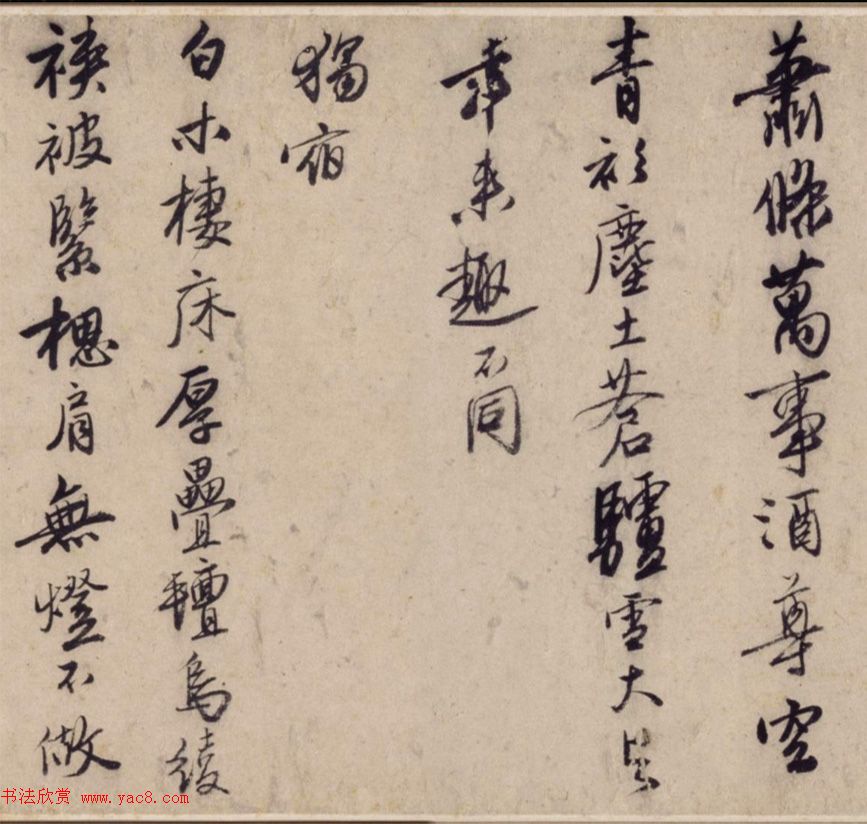 蕭條萬事酒尊空
青衫塵土蒼驢雪大是
年來趣不同
獨宿
白木棲床厚疊氈烏綾
襆被緊肩無燈不做
书法欣赏 www.yac8.com